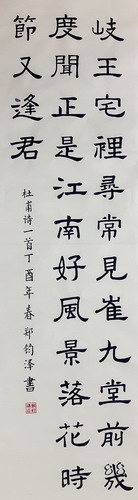 岐王宅裡尋常見崔九堂前幾
度聞正是江南好風景落花時
節又逢君
杜甫诗一首丁酉年春郑钧泽書